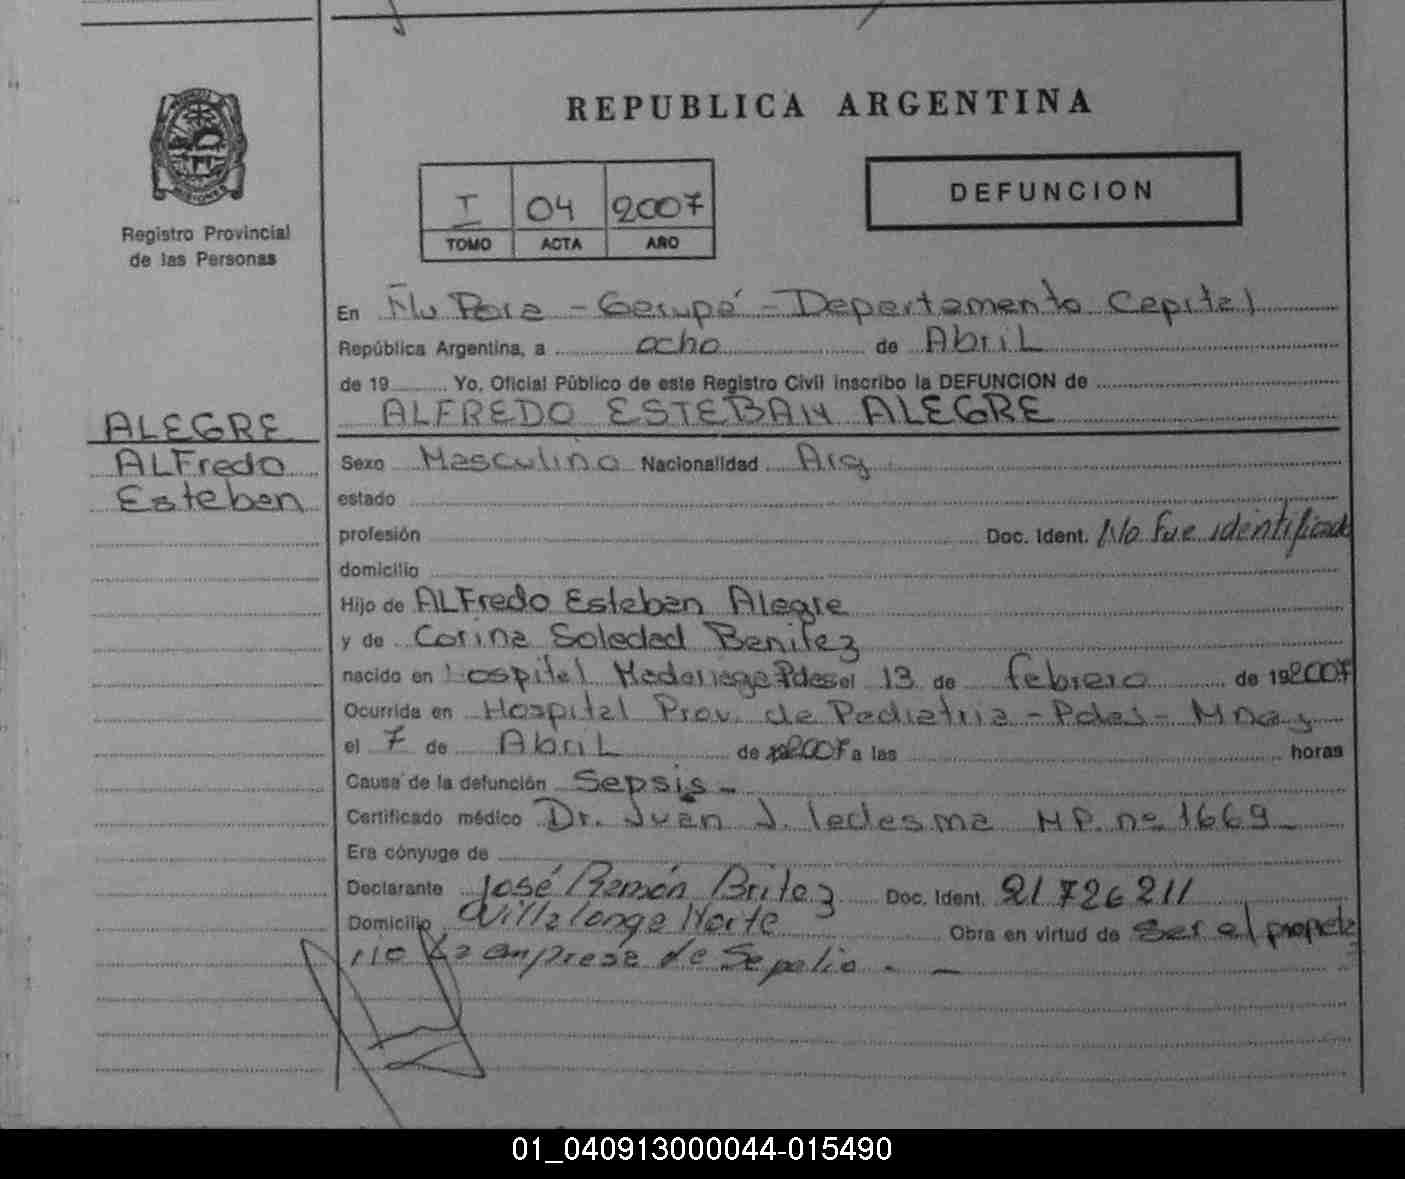 REPUBLICA ARGENTINA
DEFUNCION
I 04 2007
TOMO ACTA AÑO
Registro Provincial
de las Personas
MISIONES
En Ñu Pora - Garupá - Departamento Capital
República Argentina, a ocho de Abril
de 19 Yo, Oficial Público de este Registro Civil inscribo la DEFUNCION de
ALFREDO ESTEBAN ALEGRE
ALEGRE
ALFredo
Esteban
Sexo Masculino Nacionalidad Arg
estado
profesión Doc. Ident. No fue identificado
domicilio
Hijo de ALFredo Esteban Alegre
y de Corina Soledad Benitez
nacido en Hospital Madariaga Pdas el 13 de febrero de 19 2007
Ocurrida en Hospital Prov. de Pediatria - Pdas - Mnes
el 7 de Abril de 2007 a las horas
Causa de la defunción Sepsis -
Certificado médico Dr. Juan J. ledesma M.P. nº 1669 -
Era cónyuge de
Declarante José Ramón Britez Doc. Ident. 21726211
Domicilio Villalonga Norte Obra en virtud de Ser el propieta
rio empresa de Sepelio. -
01_040913000044-015490